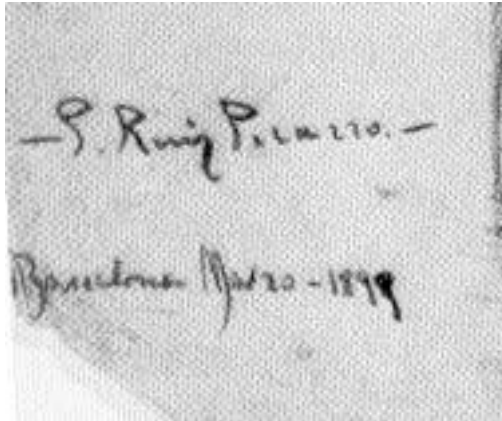 —P. Ruiz Picazzo.—
Barcelona Marzo - 1899